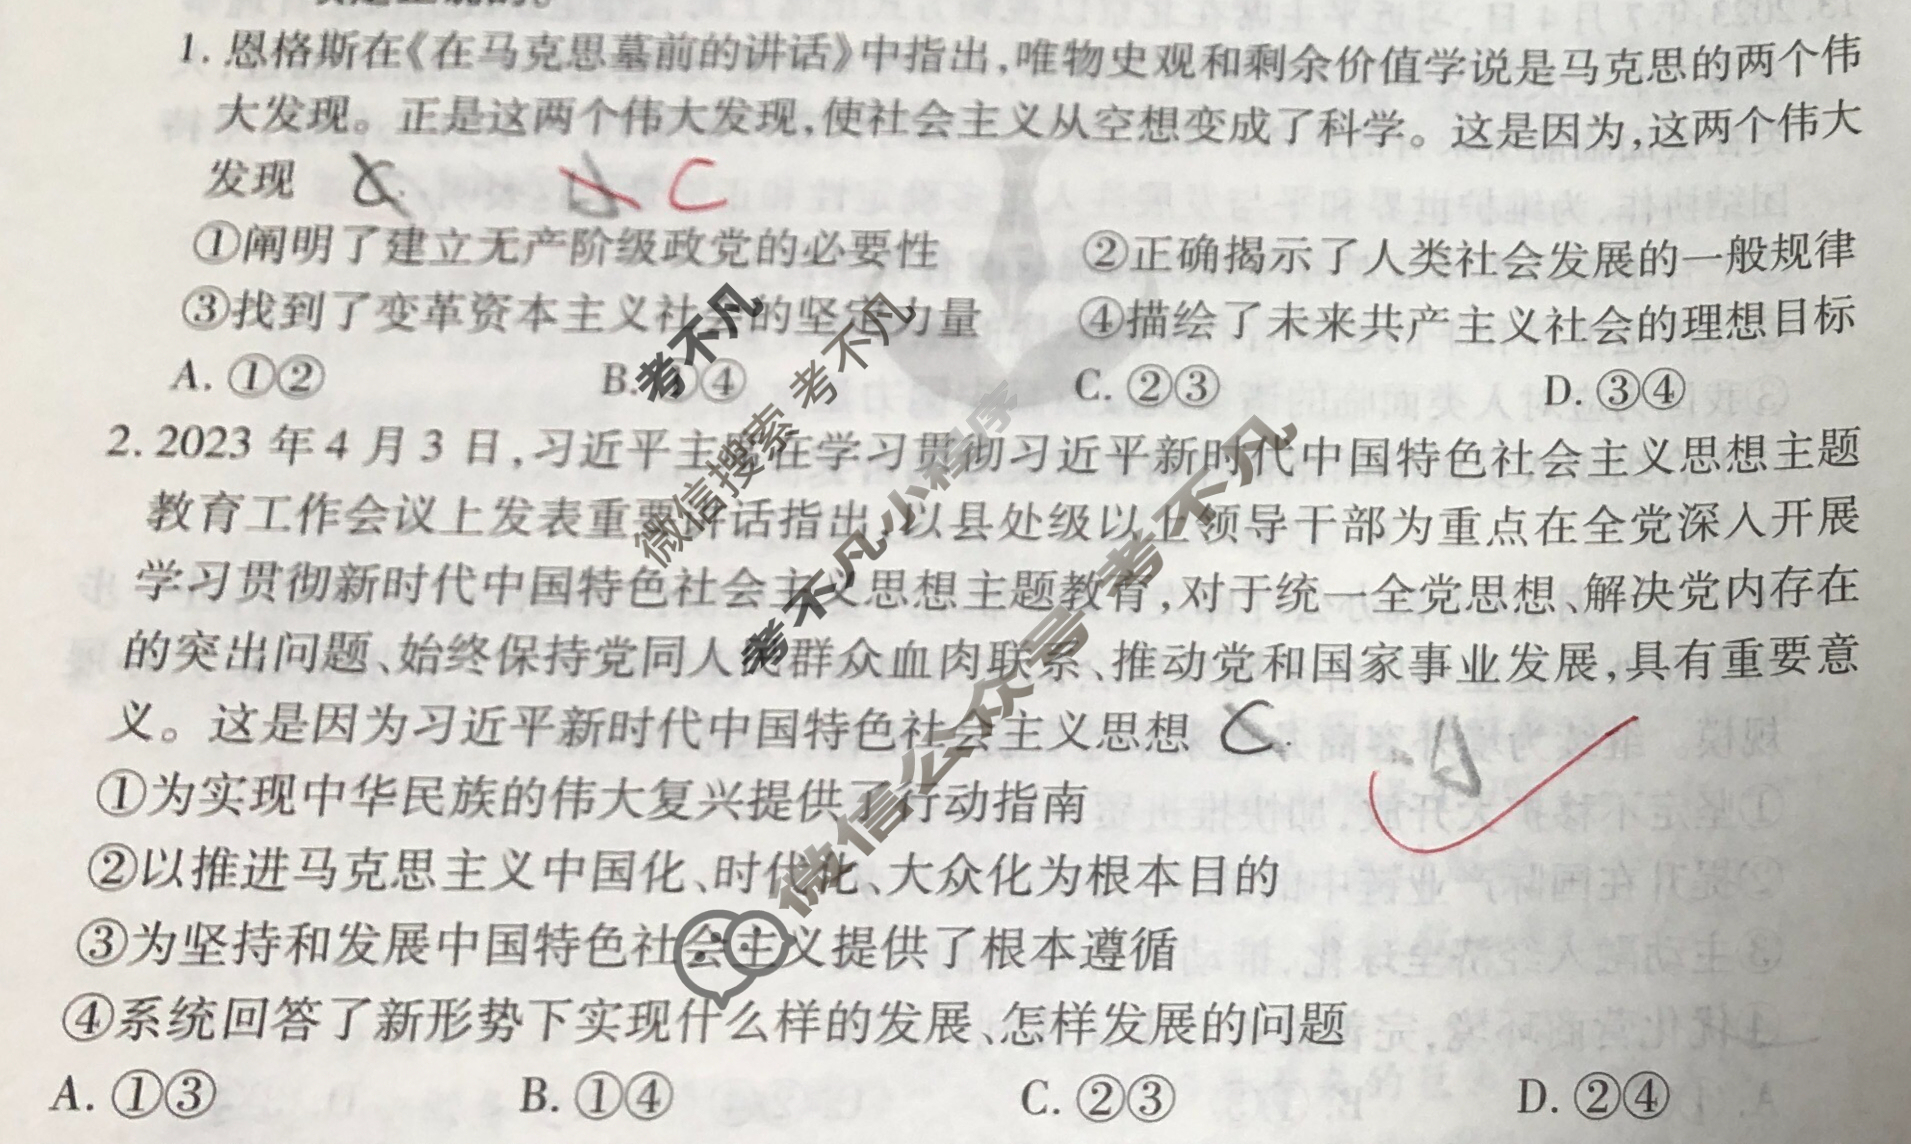 1. 恩格斯在《在马克思墓前的讲话》中指出,唯物史观和剩余价值学说是马克思的两个伟
大发现。正是这两个伟大发现,使社会主义从空想变成了科学。这是因为,这两个伟大
发现 C
①阐明了建立无产阶级政党的必要性 ②正确揭示了人类社会发展的一般规律
③找到了变革资本主义社会的坚定力量 ④描绘了未来共产主义社会的理想目标
A. ①② B. ④ C. ②③ D. ③④
2. 2023 年 4 月 3 日,习近平主席在学习贯彻习近平新时代中国特色社会主义思想主题
教育工作会议上发表重要讲话指出,以县处级以上领导干部为重点在全党深入开展
学习贯彻新时代中国特色社会主义思想主题教育,对于统一全党思想、解决党内存在
的突出问题、始终保持党同人民群众血肉联系、推动党和国家事业发展,具有重要意
义。这是因为习近平新时代中国特色社会主义思想 C. A
①为实现中华民族的伟大复兴提供了行动指南
②以推进马克思主义中国化、时代化、大众化为根本目的
③为坚持和发展中国特色社会主义提供了根本遵循
④系统回答了新形势下实现什么样的发展、怎样发展的问题
A. ①③ B. ①④ C. ②③ D. ②④
考不凡
微信搜索 考不凡
考不凡小程序
微信公众号 考不凡